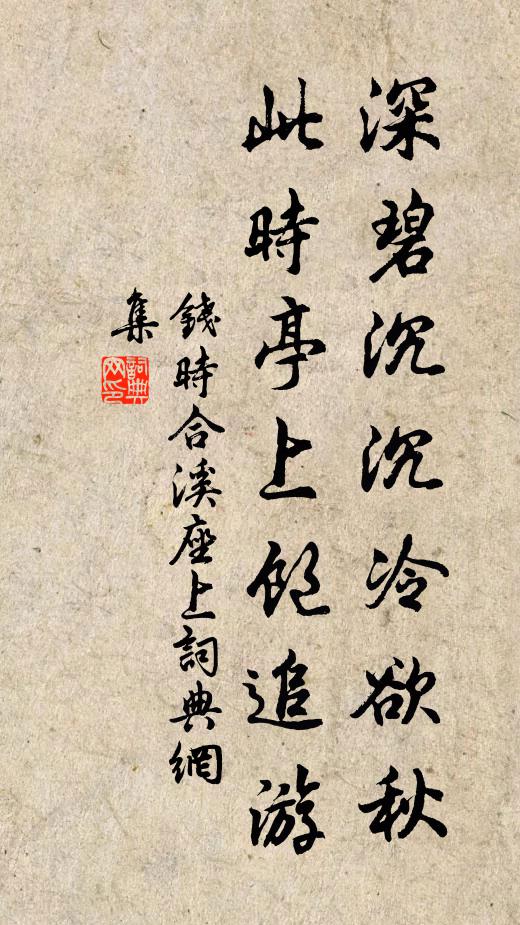 深碧沉沉冷欲秋
此時亭上飽追游
錢時合溪座上詞典網
集
詞典網印